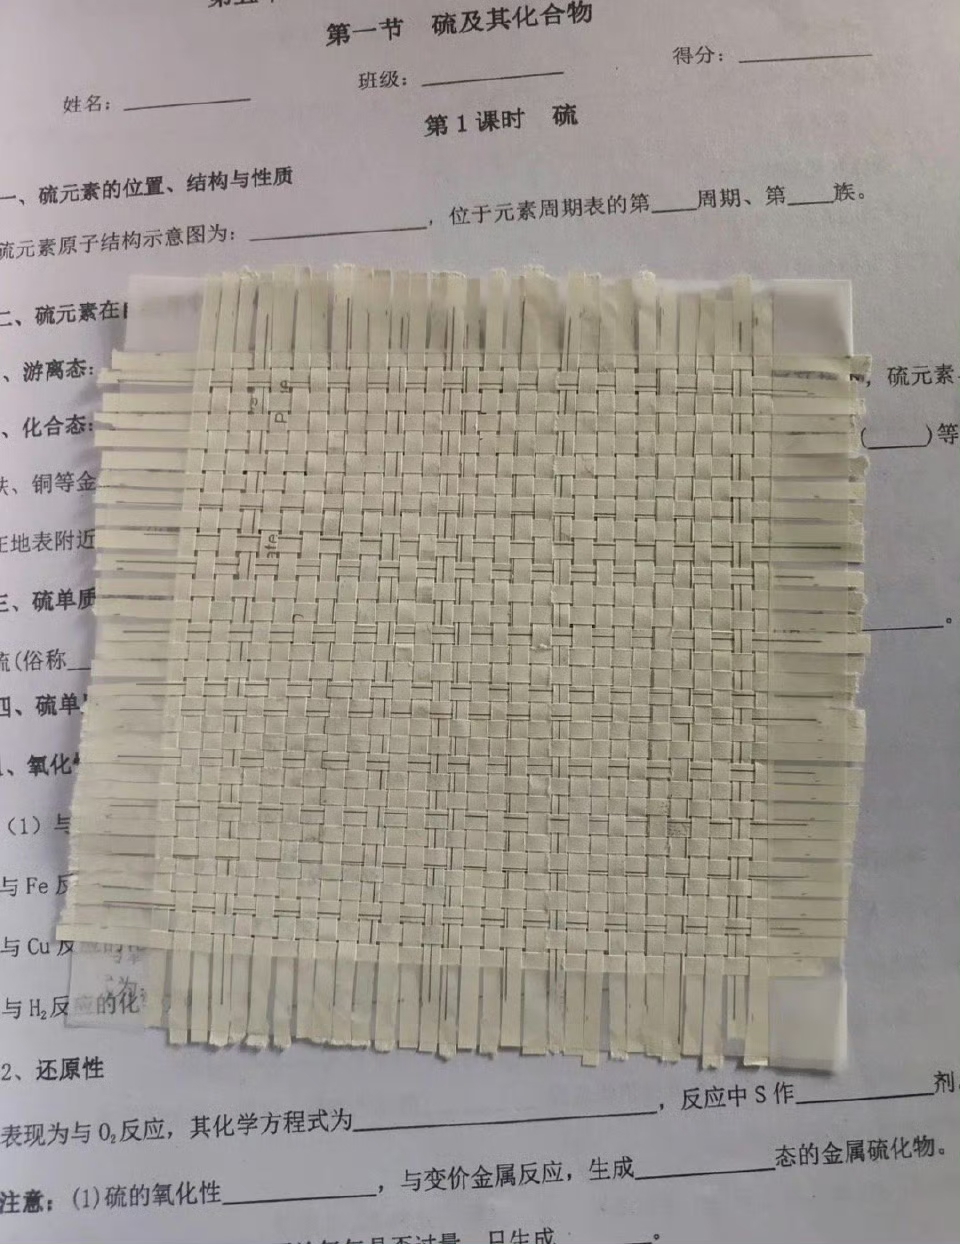 第一节 硫及其化合物
姓名：________ 班级：________ 得分：________
第1课时 硫
一、硫元素的位置、结构与性质
硫元素原子结构示意图为：________，位于元素周期表的第____周期、第____族。
二、硫元素在
、游离态：
，硫元素
、化合态：
(____)等
铁、铜等金
在地表附近
三、硫单质
。
硫(俗称__
四、硫单
、氧化
（1）与
与Fe反
与Cu反应的化
为：
与H₂反应的化
2、还原性
表现为与O₂反应，其化学方程式为________，反应中S作________剂
注意：(1)硫的氧化性________，与变价金属反应，生成________态的金属硫化物。
是否过量，只生成________。
ate